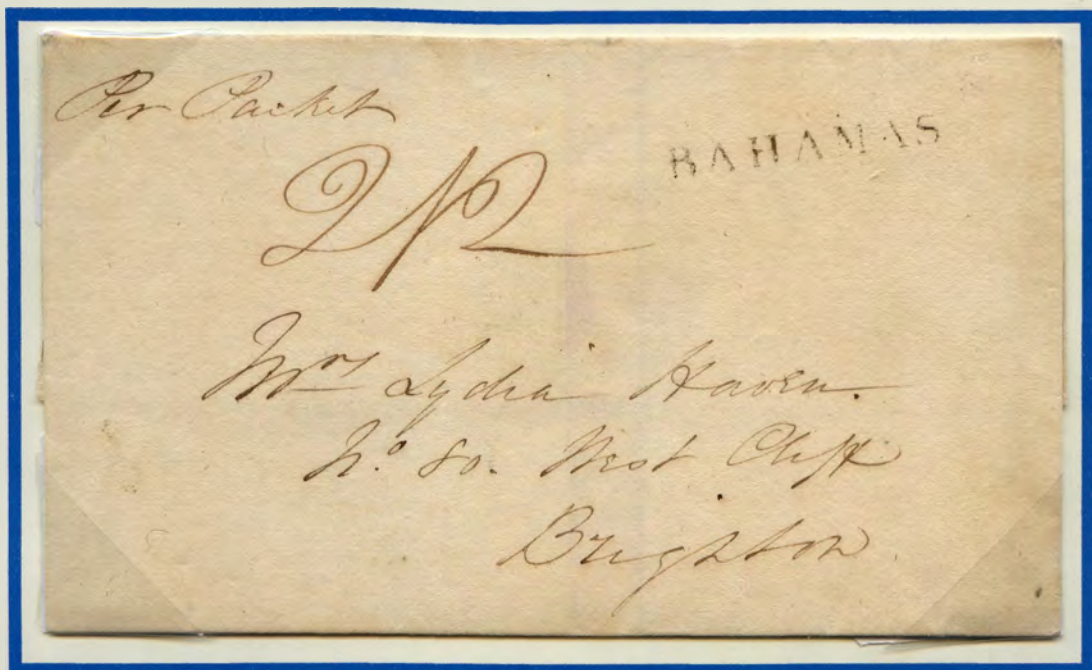 Per Packet
BAHAMAS
2/2
Mrs Lydia Haven.
No. 80. West Cliff
Brighton